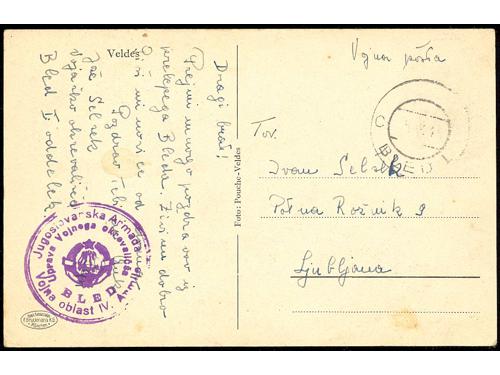 Veldes
Dragi brat!
Prejmi mnogo pozdravov iz
prelepega Bleda. Živim dobro
Pozdrav Tebi
Jože Selšek
Vojaško okrevališče
Bled I oddelek
Jugoslovanska Armada
Uprava Vojnega okrevališča
BLED
Vojna oblast IV. Armije
Foto: Pouche-Veldes
Vojna pošta
BLED
Tov.
Ivan Selšek
Pot na Rožnik 9
Ljubljana